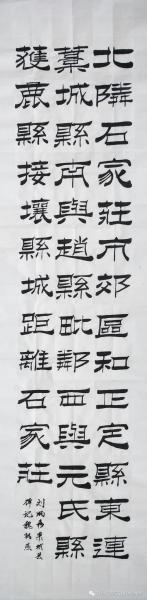 北隣石家莊市郊區和正定縣東連
藁城縣南與趙縣毗鄰西與元氏縣
鹿縣接壤縣城距離石家莊